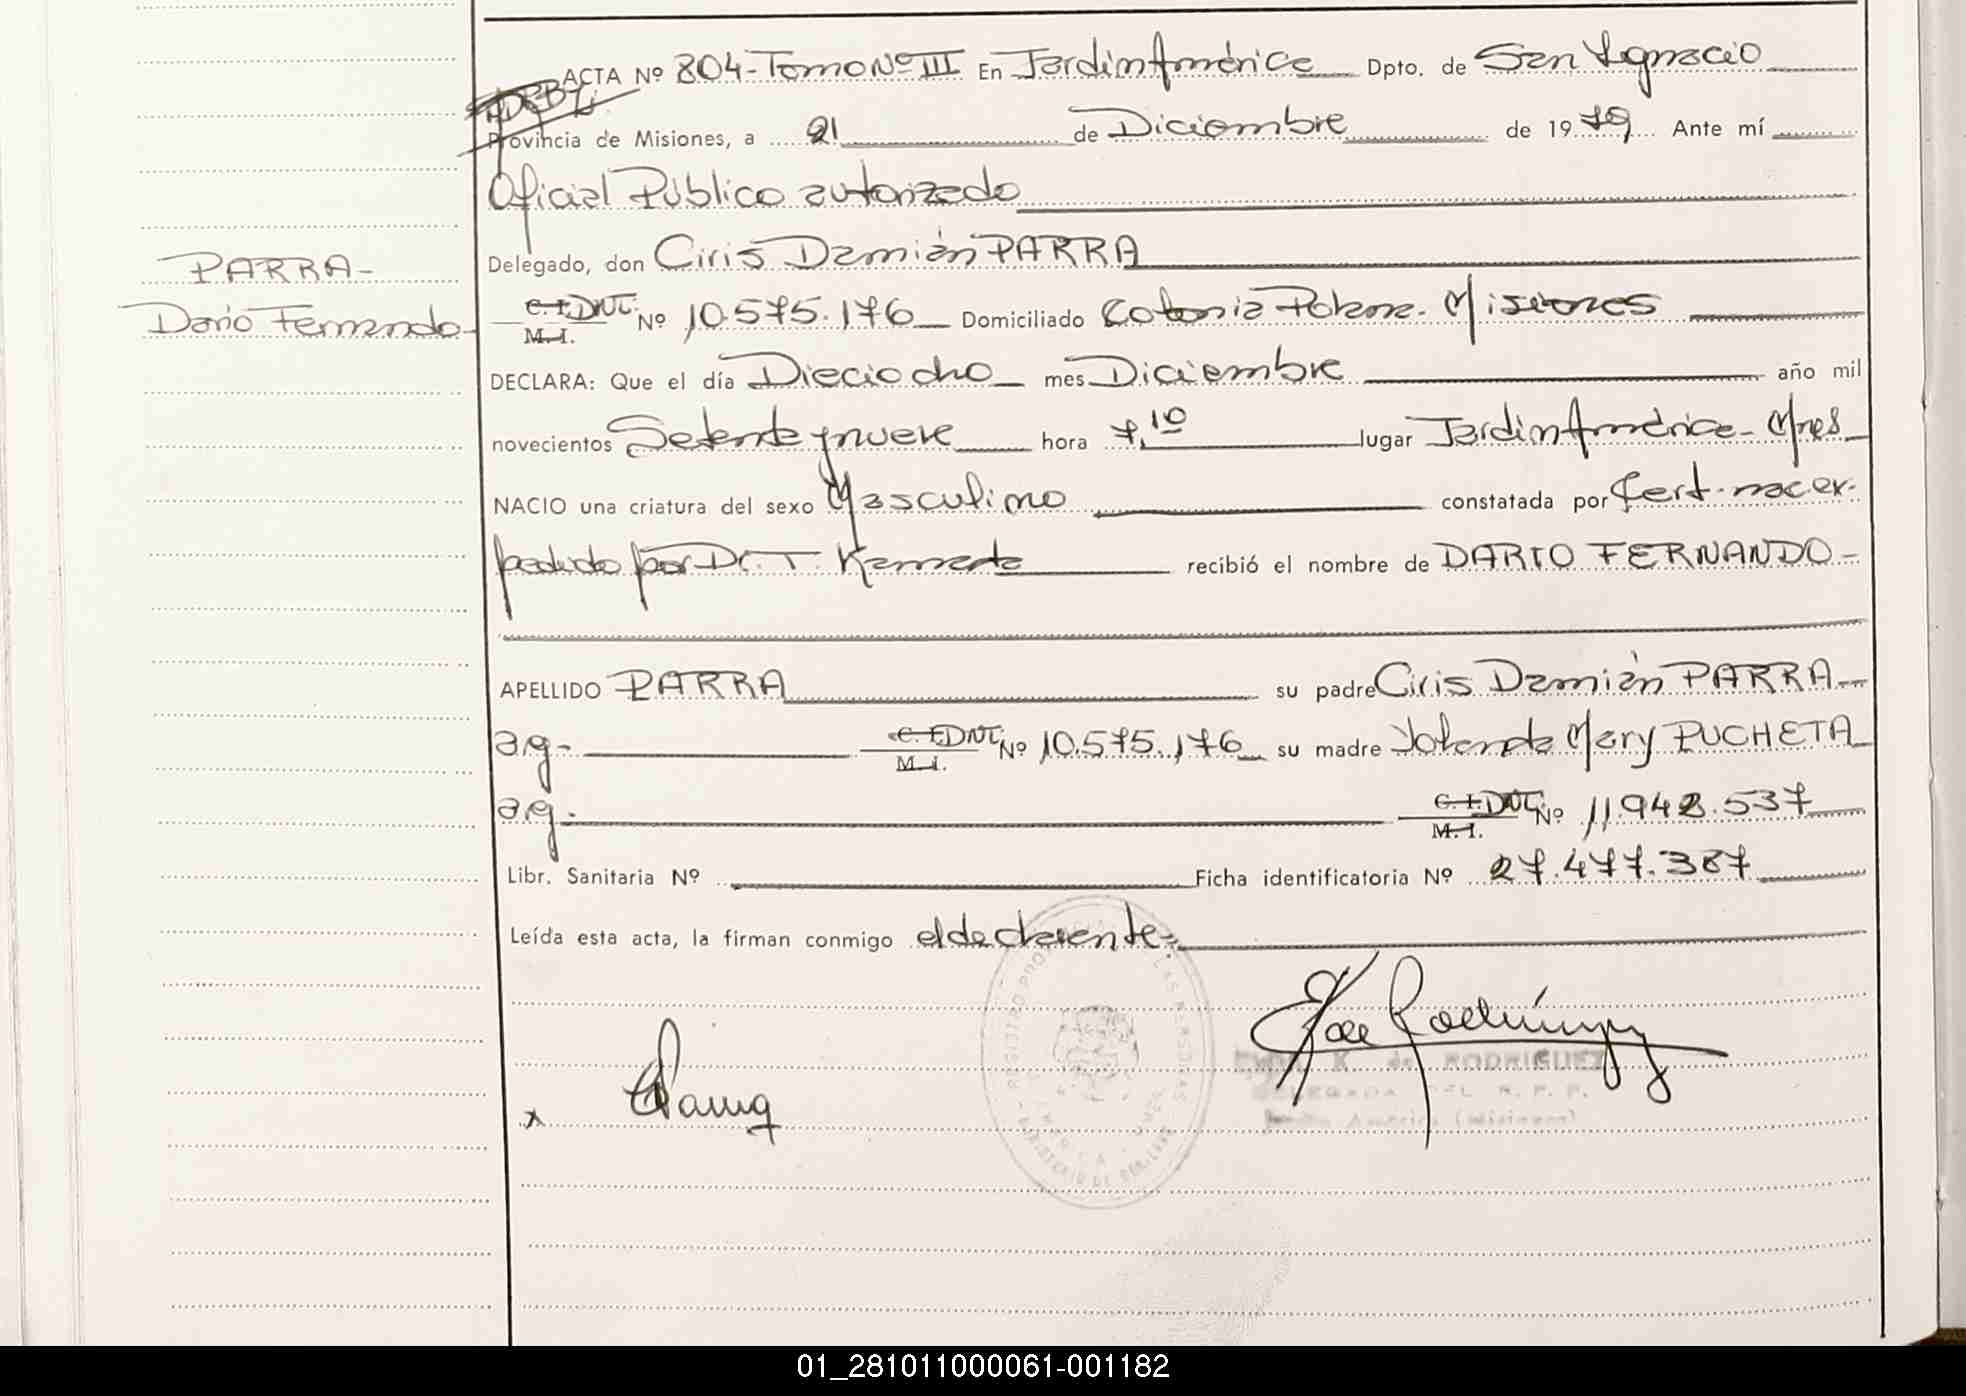 ACTA Nº 804-Tomo Nº III En Jardín América Dpto. de San Ignacio
Provincia de Misiones, a 21 de Diciembre de 1979 Ante mí
Oficial Público autorizado
Delegado, don Ciris Damián PARRA
PARRA-
Dario Fernando-
C.I. DNI. Nº 10.575.176 Domiciliado Colonia Polana. Misiones
M.I.
DECLARA: Que el día Dieciocho mes Diciembre año mil
novecientos Setenta y nueve hora 7,10 lugar Jardín América - Mnes
NACIO una criatura del sexo Masculino constatada por Cert. nac ex-
pedido por Dr. T. recibió el nombre de DARIO FERNANDO-
APELLIDO PARRA su padre Ciris Damián PARRA-
arg- C.I. DNI. Nº 10.575.176 su madre Yolanda Mary PUCHETA
M.I.
arg- C.I. DNI. Nº 11.942.537
M.I.
Libr. Sanitaria Nº Ficha identificatoria Nº 27.477.387
Leída esta acta, la firman conmigo el declarente.
K. de RODRIGUEZ
DELEGADA DEL R. P. P.
América (Misiones)
x
01_281011000061-001182